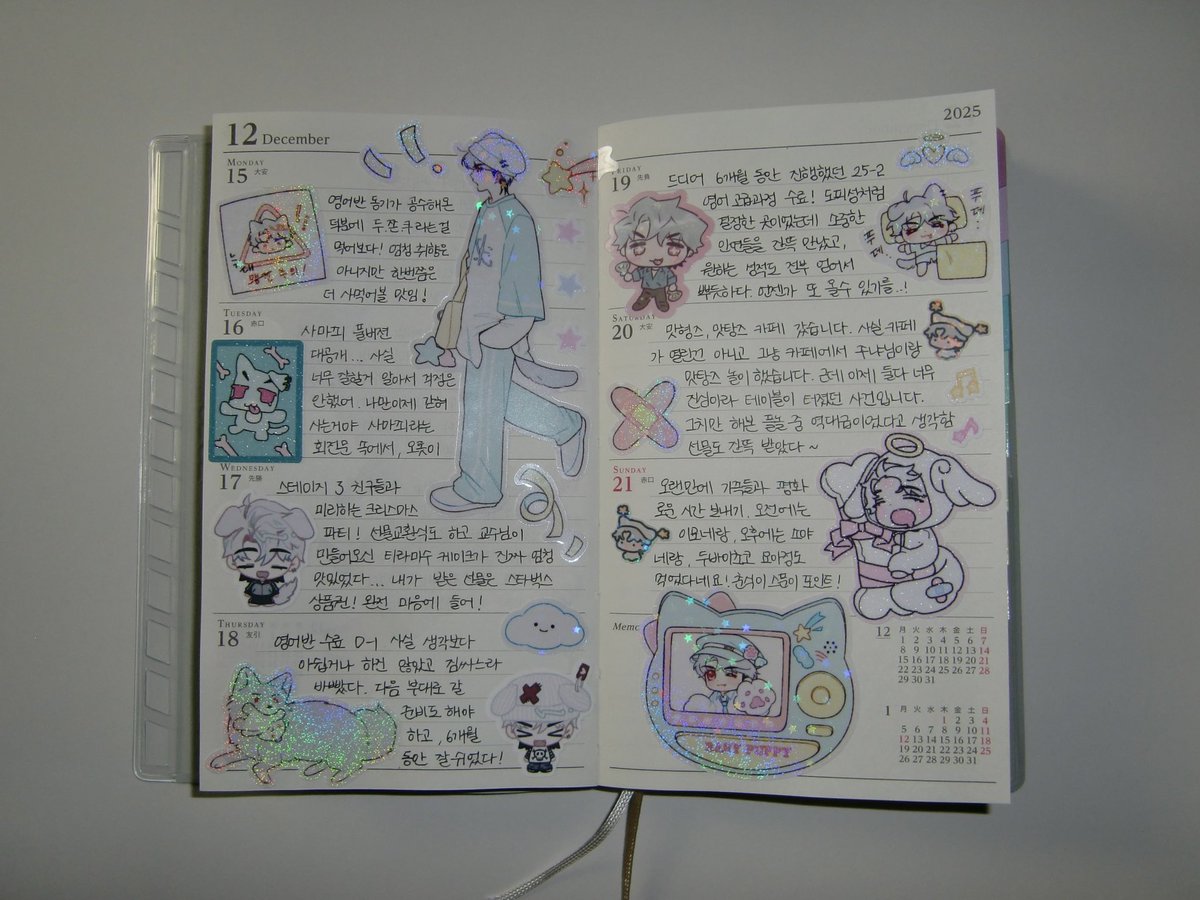 12 December
MONDAY
15 大安
영어반 동기가 공수해온
덕분에 두.쫀.쿠 라는걸
먹어보다! 엄청 취향은
아니지만 한번쯤은
더 사먹어볼 맛임!
TUESDAY
16 赤口
사마귀 풀버전
대공개... 사실
너무 잘할게 알아서 걱정은
안했어. 나만이제 갇혀
사는거야 사마귀라는
회전문 속에서, 오롯이
WEDNESDAY
17 先勝
스테이지 3 친구들과
미리하는 크리스마스
파티! 선물교환식도 하고 교수님이
만들어오신 티라마수 케이크가 진짜 엄청
맛있었다... 내가 받은 선물은 스타벅스
상품권! 완전 마음에 들어!
THURSDAY
18 友引
영어반 수료 D-1 사실 생각보다
아쉽거나 하진 않았고 짐싸느라
바빴다. 다음 부대로 갈
준비도 해야
하고, 6개월
동안 잘 쉬었다!
2025
FRIDAY
19 先負
드디어 6개월 동안 진행했던 25-2
영어 고급과정 수료! 도피성처럼
결정한 곳이었는데 소중한
인연들을 잔뜩 만났고,
원하는 성적도 전부 얻어서
뿌듯하다. 언젠가 또 올수 있기를..!
푹
푹
SATURDAY
20 大安
맛형즈, 맛탕즈 카페 갔습니다. 사실 카페
가 열린건 아니고 그냥 카페에서 주냐님이랑
맛탕즈 놀이 했습니다. 근데 이제 둘다 너무
진심이라 테이블이 터졌던 사건입니다.
그치만 해본 플놀 중 역대급이었다고 생각함
선물도 잔뜩 받았다~
SUNDAY
21 赤口
오랜만에 가족들과 평화
로운 시간 보내기. 오전에는
이모네랑, 오후에는 쏘야
네랑, 두바이초코 요아정도
먹었다네요! 춘식이 스푼이 포인트!
Memo
BABY PUPPY
12 月 火 水 木 金 土 日
1 2 3 4 5 6 7
8 9 10 11 12 13 14
15 16 17 18 19 20 21
22 23 24 25 26 27 28
29 30 31
1 月 火 水 木 金 土 日
1 2 3 4
5 6 7 8 9 10 11
12 13 14 15 16 17 18
19 20 21 22 23 24 25
26 27 28 29 30 31